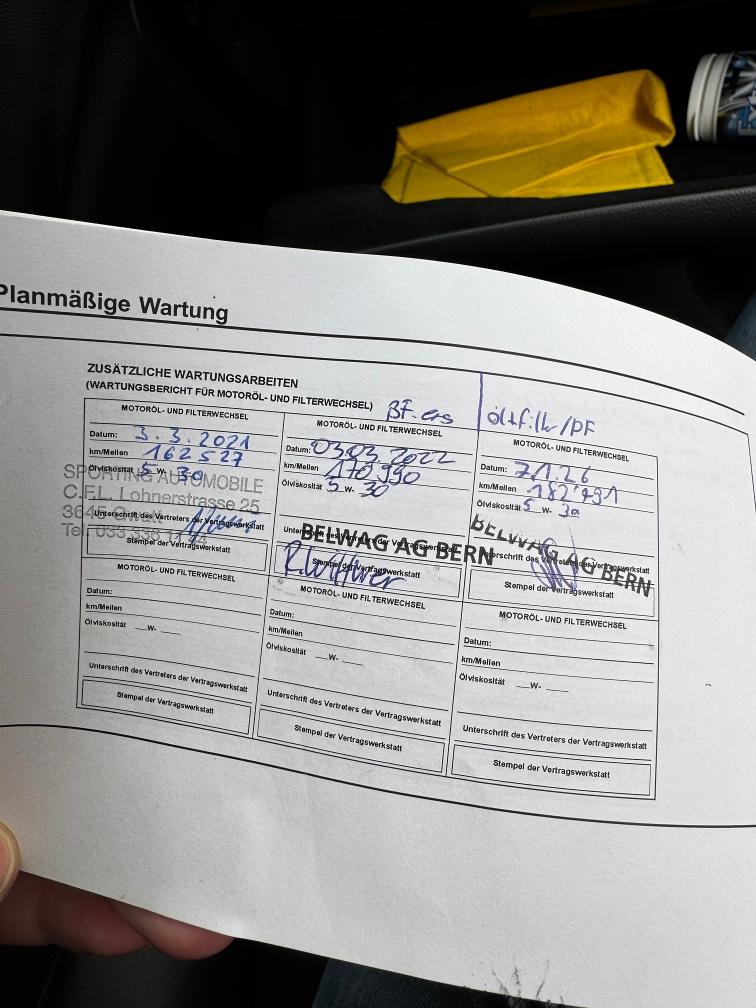 Planmäßige Wartung
ZUSÄTZLICHE WARTUNGSARBEITEN
(WARTUNGSBERICHT FÜR MOTORÖL- UND FILTERWECHSEL)
BF. ers
ölfilter/PF
MOTORÖL- UND FILTERWECHSEL
Datum: 3.3.2021
km/Meilen 162527
Ölviskosität 5 W- 30
SPORTING AUTOMOBILE
C.F.L. Lohnerstrasse 25
3645 Gwatt
Tel. 033 336
Unterschrift des Vertreters der Vertragswerkstatt
Stempel der Vertragswerkstatt
MOTORÖL- UND FILTERWECHSEL
Datum: 03.03.2022
km/Meilen 170990
Ölviskosität 5 W- 30
Unterschrift des Vertreters der Vertragswerkstatt
BELWAG AG BERN
Stempel der Vertragswerkstatt
MOTORÖL- UND FILTERWECHSEL
Datum: 7.1.26
km/Meilen 182'991
Ölviskosität 5 W- 30
BELWAG AG BERN
Unterschrift des Vertreters der Vertragswerkstatt
Stempel der Vertragswerkstatt
MOTORÖL- UND FILTERWECHSEL
Datum:
km/Meilen
Ölviskosität __W- ___
Unterschrift des Vertreters der Vertragswerkstatt
Stempel der Vertragswerkstatt
MOTORÖL- UND FILTERWECHSEL
Datum:
km/Meilen
Ölviskosität __W- ___
Unterschrift des Vertreters der Vertragswerkstatt
Stempel der Vertragswerkstatt
MOTORÖL- UND FILTERWECHSEL
Datum:
km/Meilen
Ölviskosität __W- ___
Unterschrift des Vertreters der Vertragswerkstatt
Stempel der Vertragswerkstatt